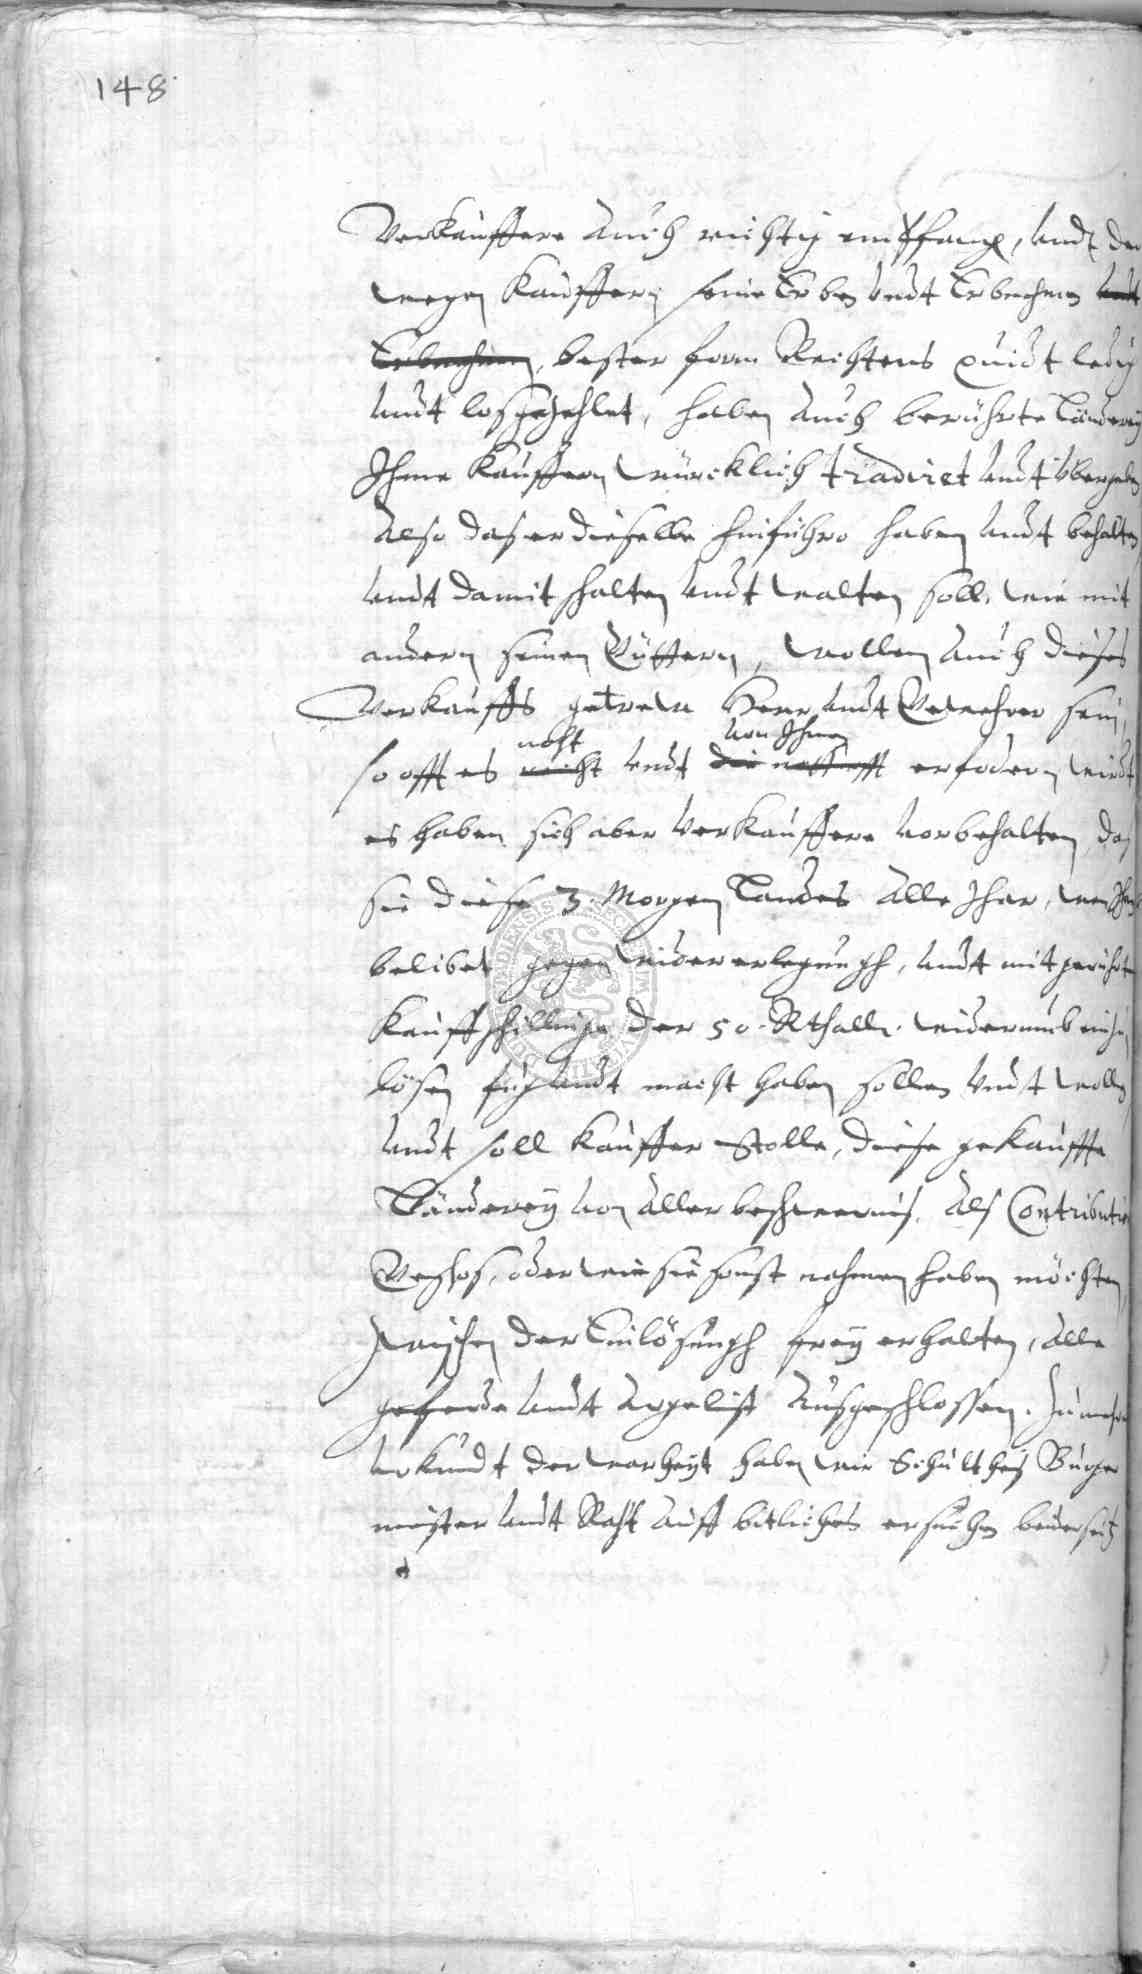 148
Verkauffere auch richtig empffang, undt der
wegen Kauffern seine Erben undt Erbnehmen undt
Erbnehmen, bester form Rechtens quidt ledig
undt losgezehlet, haben auch berührte Länderey
Ihme Kauffern würcklich tradiret undt übergeben
Also das er dieselbe hinführo haben undt behalten
undt damit schalten undt walten soll, wie mit
andern seinen Güttern, wollen auch dieses
Verkauffs getrewe Herr undt Wehrer sein,
noht von Ihnen
so offt es nicht undt die erfodern wirdt
es haben sich aber Verkauffere vorbehalten, das
sie diese 3. Morgen Landes alle Jhar, wen Ihnen
belibet gegen widererlegungh, undt mit
Kauffschillinge der 50. Rthall. widerumb einzu
lösen fug undt macht haben sollen undt wollen
undt soll Kauffer Stolle, diese gekauffte
Länderey von aller beschwernis, als Contribution
Geschos, oder wie sie sonst nahmen haben möchten
zwischen der Einlösungh frey erhalten, alle
geferde undt argelist ausgeschlossen. Zu mehrer
uhrkundt der warheyt haben wir Schultheis Burge
meister undt Raht auff bitliches ersuchen beiderseitz